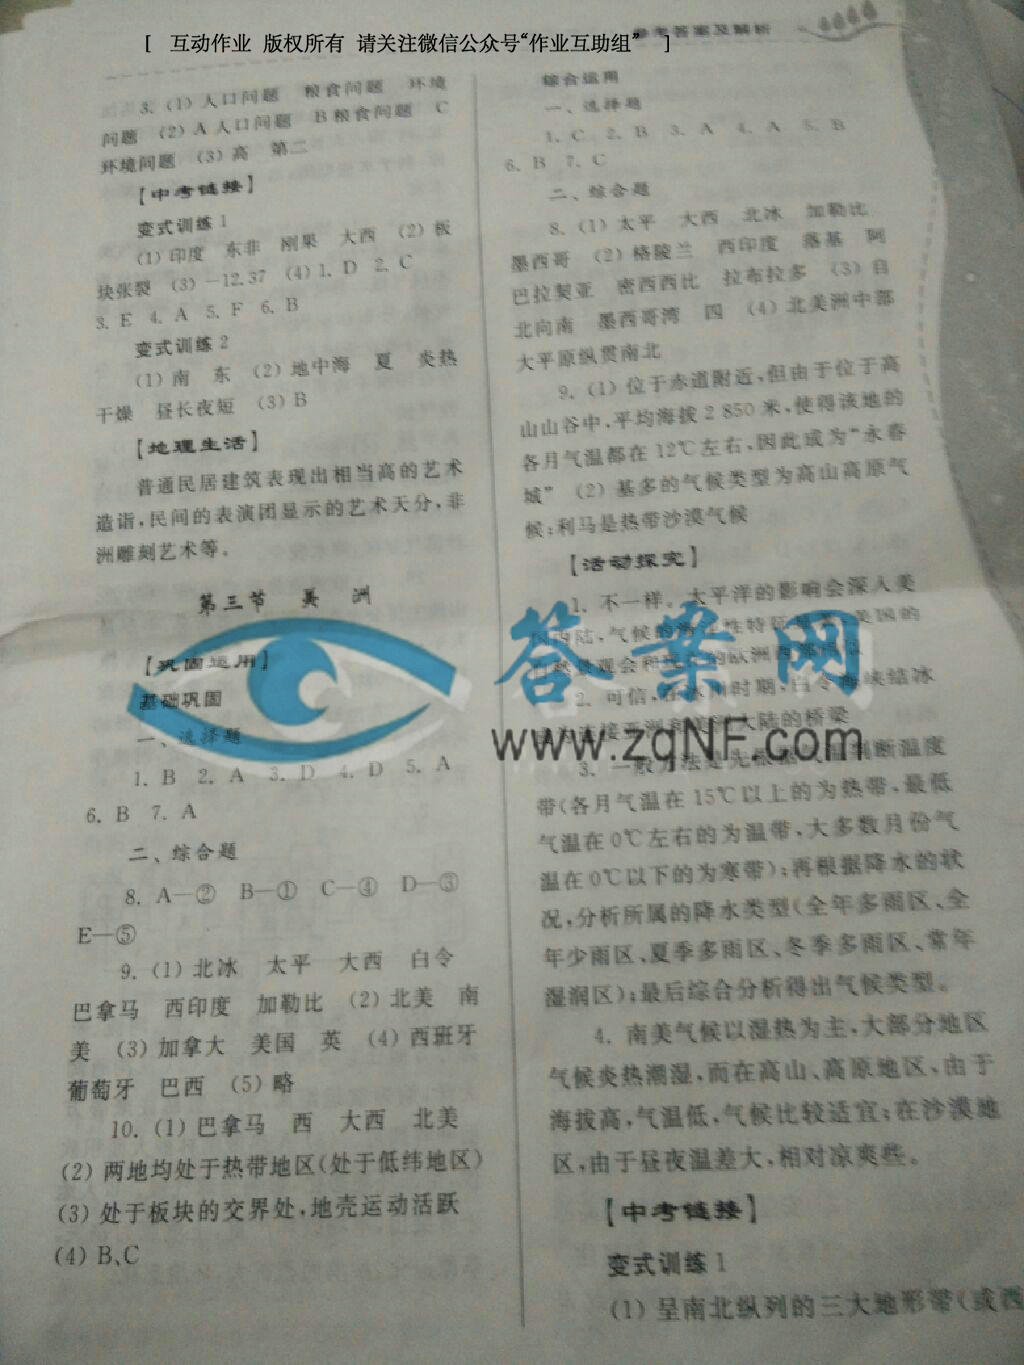 [ 互动作业 版权所有 请关注微信公众号“作业互助组” ]
参考答案及解析
3. (1) 人口问题 粮食问题 环境
问题 (2) A 人口问题 B 粮食问题 C
环境问题 (3) 高 第二
【中考链接】
变式训练 1
(1) 印度 东非 刚果 大西 (2) 板
块张裂 (3) －12.37 (4) 1. D 2. C
3. E 4. A 5. F 6. B
变式训练 2
(1) 南 东 (2) 地中海 夏 炎热
干燥 昼长夜短 (3) B
【地理生活】
普通民居建筑表现出相当高的艺术
造诣,民间的表演团显示的艺术天分,非
洲雕刻艺术等。
第三节 美 洲
【巩固运用】
基础巩固
一、选择题
1. B 2. A 3. D 4. D 5. A
6. B 7. A
二、综合题
8. A—② B—① C—④ D—③
E—⑤
9. (1) 北冰 太平 大西 白令
巴拿马 西印度 加勒比 (2) 北美 南
美 (3) 加拿大 美国 英 (4) 西班牙
葡萄牙 巴西 (5) 略
10. (1) 巴拿马 西 大西 北美
(2) 两地均处于热带地区(处于低纬地区)
(3) 处于板块的交界处,地壳运动活跃
(4) B、C
综合运用
一、选择题
1. C 2. B 3. A 4. A 5. B
6. B 7. C
二、综合题
8. (1) 太平 大西 北冰 加勒比
墨西哥 (2) 格陵兰 西印度 落基 阿
巴拉契亚 密西西比 拉布拉多 (3) 自
北向南 墨西哥湾 四 (4) 北美洲中部
大平原纵贯南北
9. (1) 位于赤道附近,但由于位于高
山山谷中,平均海拔 2 850 米,使得该地的
各月气温都在 12℃左右,因此成为“永春
城” (2) 基多的气候类型为高山高原气
候;利马是热带沙漠气候
【活动探究】
1. 不一样。太平洋的影响会深入美
国内陆,气候的海洋性特征 美国的
自然景观会和现在的欧洲西部
2. 可信,在冰川时期,白令海峡结冰
连接亚洲和美洲大陆的桥梁
3. 一般方法是先根据气温判断温度
带(各月气温在 15℃以上的为热带,最低
气温在 0℃左右的为温带,大多数月份气
温在 0℃以下的为寒带);再根据降水的状
况,分析所属的降水类型(全年多雨区、全
年少雨区、夏季多雨区、冬季多雨区、常年
湿润区);最后综合分析得出气候类型。
4. 南美气候以湿热为主,大部分地区
气候炎热潮湿,而在高山、高原地区,由于
海拔高,气温低,气候比较适宜;在沙漠地
区,由于昼夜温差大,相对凉爽些。
【中考链接】
变式训练 1
(1) 呈南北纵列的三大地形带(或西
答案网
www.zqNF.com